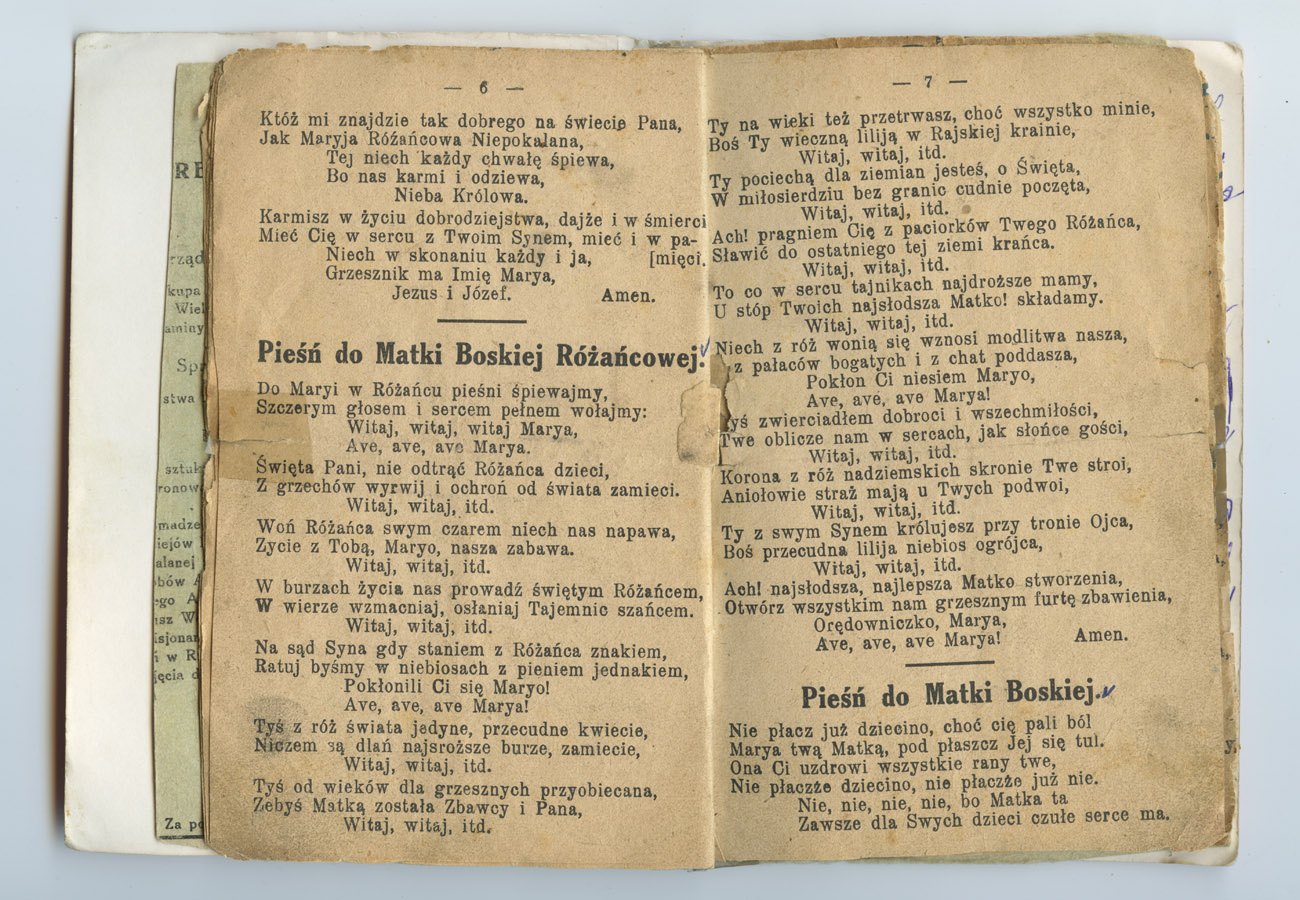 — 6 —
Któż mi znajdzie tak dobrego na świecie Pana,
Jak Maryja Różańcowa Niepokalana,
Tej niech każdy chwałę śpiewa,
Bo nas karmi i odziewa,
Nieba Królowa.
Karmisz w życiu dobrodziejstwa, dajże i w śmierci
Mieć Cię w sercu z Twoim Synem, mieć i w pa-
Niech w skonaniu każdy i ja, [mięci.
Grzesznik ma Imię Marya,
Jezus i Józef. Amen.
Pieśń do Matki Boskiej Różańcowej.
Do Maryi w Różańcu pieśni śpiewajmy,
Szczerym głosem i sercem pełnem wołajmy:
Witaj, witaj, witaj Marya,
Ave, ave, ave Marya.
Święta Pani, nie odtrąć Różańca dzieci,
Z grzechów wyrwij i ochroń od świata zamieci.
Witaj, witaj, itd.
Woń Różańca swym czarem niech nas napawa,
Zycie z Tobą, Maryo, nasza zabawa.
Witaj, witaj, itd.
W burzach życia nas prowadź świętym Różańcem,
W wierze wzmacniaj, osłaniaj Tajemnic szańcem.
Witaj, witaj, itd.
Na sąd Syna gdy staniem z Różańca znakiem,
Ratuj byśmy w niebiosach z pieniem jednakiem,
Pokłonili Ci się Maryo!
Ave, ave, ave Marya!
Tyś z róż świata jedyne, przecudne kwiecie,
Niczem są dlań najsroższe burze, zamiecie,
Witaj, witaj, itd.
Tyś od wieków dla grzesznych przyobiecana,
Zebyś Matką została Zbawcy i Pana,
Witaj, witaj, itd.
— 7 —
Ty na wieki też przetrwasz, choć wszystko minie,
Boś Ty wieczną liliją w Rajskiej krainie,
Witaj, witaj, itd.
Ty pociechą dla ziemian jesteś, o Święta,
W miłosierdziu bez granic cudnie poczęta,
Witaj, witaj, itd.
Ach! pragniem Cię z paciorków Twego Różańca,
Sławić do ostatniego tej ziemi krańca.
Witaj, witaj, itd.
To co w sercu tajnikach najdroższe mamy,
U stóp Twoich najsłodsza Matko! składamy.
Witaj, witaj, itd.
Niech z róż wonią się wznosi modlitwa nasza,
z pałaców bogatych i z chat poddasza,
Pokłon Ci niesiem Maryo,
Ave, ave, ave Marya!
Tyś zwierciadłem dobroci i wszechmiłości,
Twe oblicze nam w sercach, jak słońce gości,
Witaj, witaj, itd.
Korona z róż nadziemskich skronie Twe stroi,
Aniołowie straż mają u Twych podwoi,
Witaj, witaj, itd.
Ty z swym Synem królujesz przy tronie Ojca,
Boś przecudna lilija niebios ogrójca,
Witaj, witaj, itd.
Ach! najsłodsza, najlepsza Matko stworzenia,
Otwórz wszystkim nam grzesznym furtę zbawienia,
Orędowniczko, Marya,
Ave, ave, ave Marya! Amen.
Pieśń do Matki Boskiej.
Nie płacz już dziecino, choć cię pali ból
Marya twą Matką, pod płaszcz Jej się tul.
Ona Ci uzdrowi wszystkie rany twe,
Nie płaczże dziecino, nie płaczże już nie.
Nie, nie, nie, nie, bo Matka ta
Zawsze dla Swych dzieci czułe serce ma.